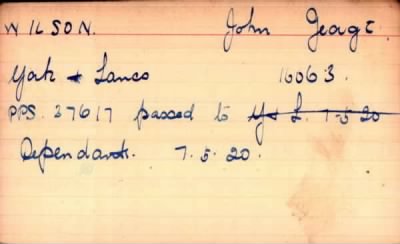 WILSON. John George
York & Lancs 16063.
PPS. 27617 passed to Y & L. 7-5-20
Dependants. 7.5.20.